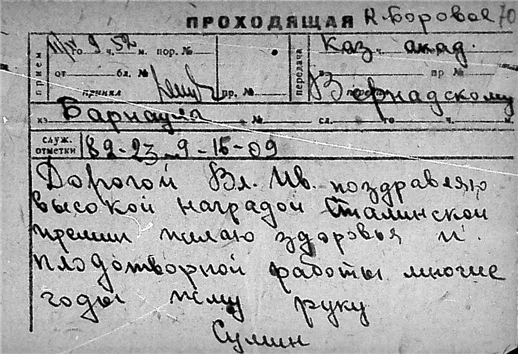 ПРОХОДЯЩАЯ К. Боровое 70
прием 9 ч. 52 м. пор. №
Каз акад.
передача
от бл. № пр. №
принял
Вернадскому
из Барнаула № сл. го ч.
СЛУЖ. ОТМЕТКИ 89-23 9-15-09
Дорогой Вл. Ив. поздравляю
высокой наградой Сталинской
премии желаю здоровья и
плодотворной работы многие
годы жму руку
Сумин